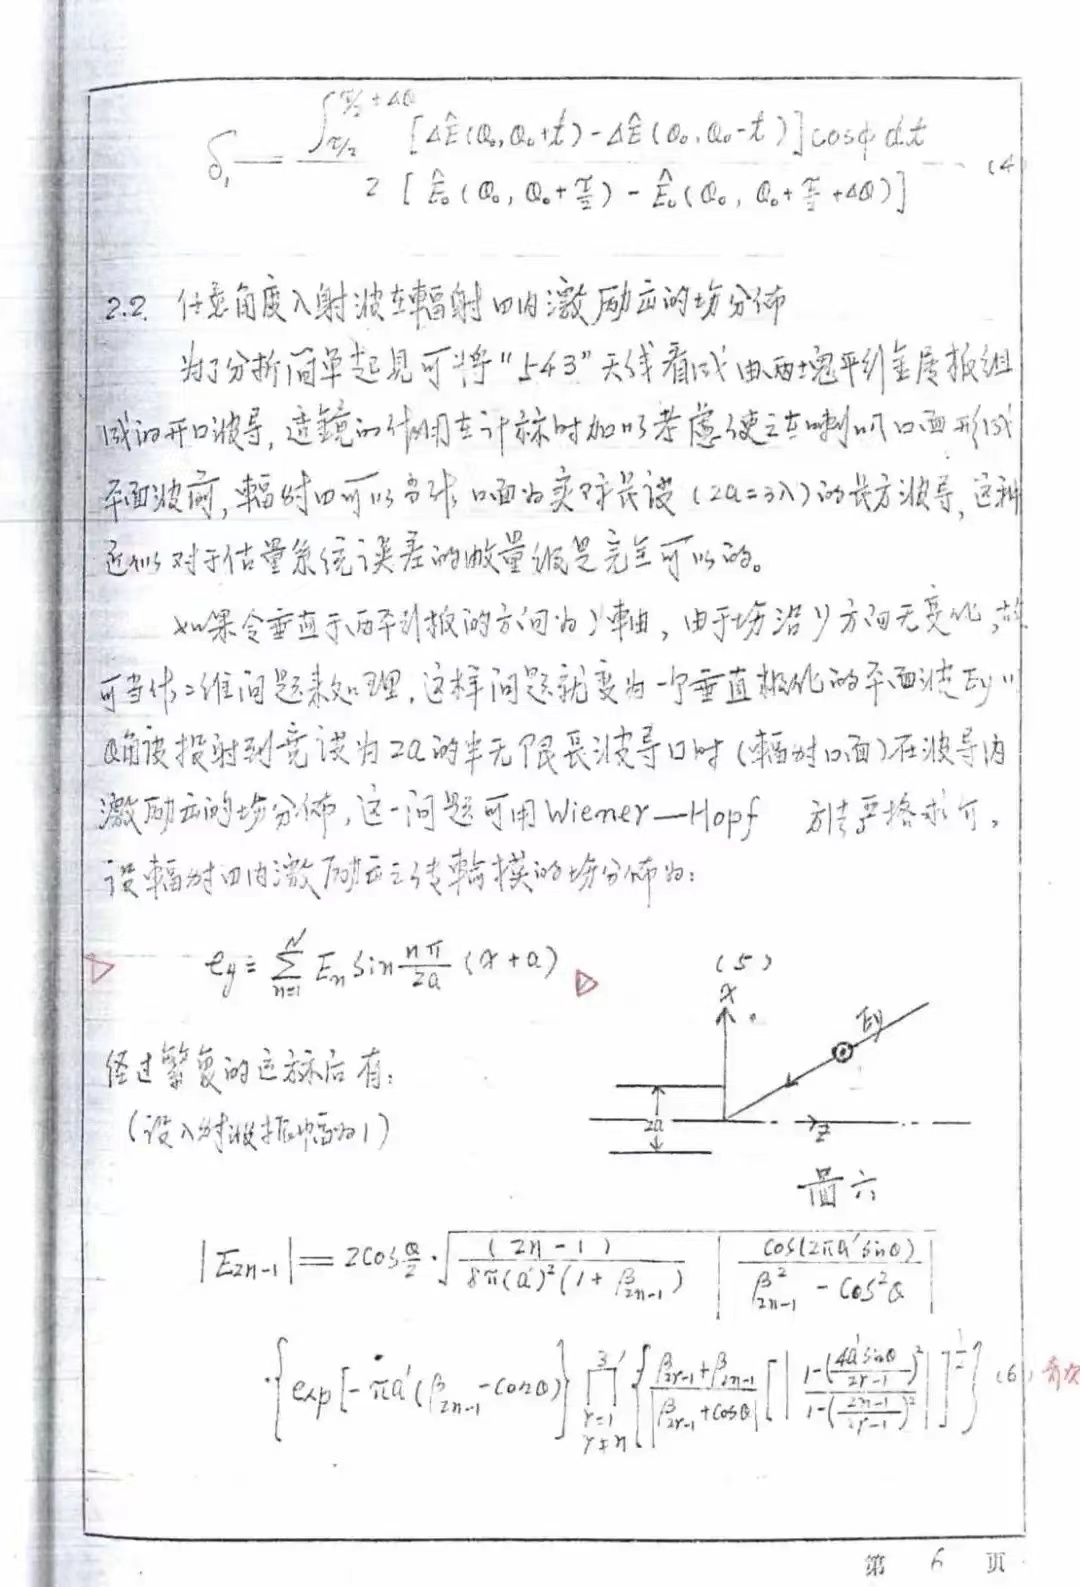 δ₁ = ∫_{π/2}^{π/2+ΔQ} [ΔÊ(Q₀,Q₀+t)-ΔÊ(Q₀,Q₀-t)]cosφdt / 2[Ê₀(Q₀,Q₀+π/2)-Ê₀(Q₀,Q₀+π/2+ΔQ)] …(4
2.2. 任意角度入射波在輻射口内激励出的场分佈
为了分析简单起見可将"543"天线看成由两块平列金属板组
成的开口波导,透鏡的作用在计标时加以考慮使之在喇叭口面形成
平面波前,輻射口可以当作口面为实际長度(2a=3λ)的長方波导,这种
近似对于估量系统误差的数量级是完全可以的。
如果令垂直于两平列板的方向为y軸,由于场沿y方向无变化,故
可当作二维问题来处理,这样问题就变为一个垂直极化的平面波Ey以
Q角度投射到宽度为2a的半无限長波导口时(輻射口面)在波导内
激励出的场分佈,这一问题可用Wiener—Hopf 方法严格求介,
设輻射口内激励出之传輸模的场分佈为:
e_y = Σ_{n=1}^{N} E_n Sin nπ/2a (x+a) (5)
x
Ey
经过繁复的运标后有:
(设入射波振幅为1)
2a
z
圖六
|E_{2n-1}| = 2cos Q/2 · √((2n-1) / 8π(a')²(1+β_{2n-1})) |cos(2πa'sinθ) / β²_{2n-1} - cos²Q|
·{exp[-πa'(β_{2n-1}-cosθ)} ∏'_{r=1, r≠n}^{3} {β_{2r-1}+β_{2n-1} / |β_{2r-1}+cosθ| [|1-(4a'sinθ/2r-1)² / 1-(2n-1/2r-1)²|]^{1/2}} (6) 奇次
第 6 页